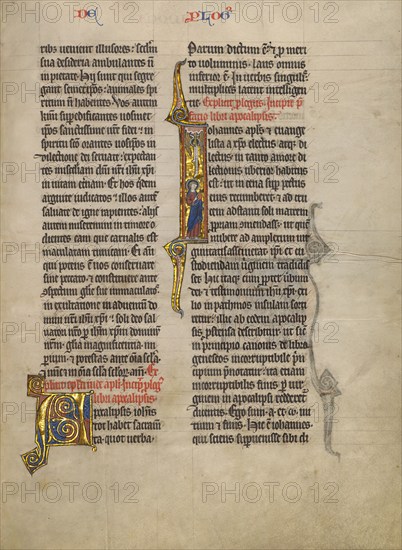 DE PLOG
ribus uenient illusores: secdm
sua desideria ambulantes n
in pietate. Hii sunt qui segre
gant semetipos: animales spi
ritum n habentes. Vos autem
kmi supedificantes uosmet
ipos sanctissime nre fidei: in
spiritu sco orantes uosipos in
dilectione dei seruate: expectan
tes miam dni nri ihu xpi
in uitam etnam. Et hos qdem
arguite iudicatos: illos autem
saluate de igne rapientes: aliis
autem miseremini in timore o
dientes eam que carnalis est
maculatam tunicam. Ei aut
qui potens e uos conseruare
sine peccato: et constituere ante
ospectum gle sue immaculatos
in exultatione in aduentu do
mini nri ihu xpi: soli deo sal
uatori nro p ihm xpm dominum
nrm: gla magnificentia: im
perium: et potestas ante oia sela
et nunc et in oia sela selor. am. Ex
plicit
libri apocalipsis.
Apocalipsis iohis
tot habet sacram
ta: quot uerba.
Parum dictum e: et p meri
to uoluminis: laus omnis
inferior e. In uerbis singulis
multiplices latent intelligen
tie. Explicit plogus. Incipit p
fatio libri apocalipsis.
Iohannes apls et euange
lista a xpo electus atq; di
lectus in tanto amore di
lectionis uberior habetur
est: ut in cena sup pectus
eius recumberet: et ad cru
cem astanti soli matrem
ppriam omendasset: ut qu
nubere
ad amplexum uir
ginitatis asciuerat: ipi et cu
stodiendam uginem tradidisset.
Hic itaq; cum ppter ubum
dei: et testimonium ihu xpi: ex
ilio in pathmos insulam sorti
retur: illic ab eodem apocalip
sis postensa describitur: ut sic
in principio canonis id e libri
geneseos incorruptibile pn
cipium pnotatur: ita etiam
incorruptibilis finis p uir
ginem in apocalipsi redderet
dicentis. Ego sum a. et o. ini
tium et finis. Hic e iohannes:
qui sciens superuenisse sibi di